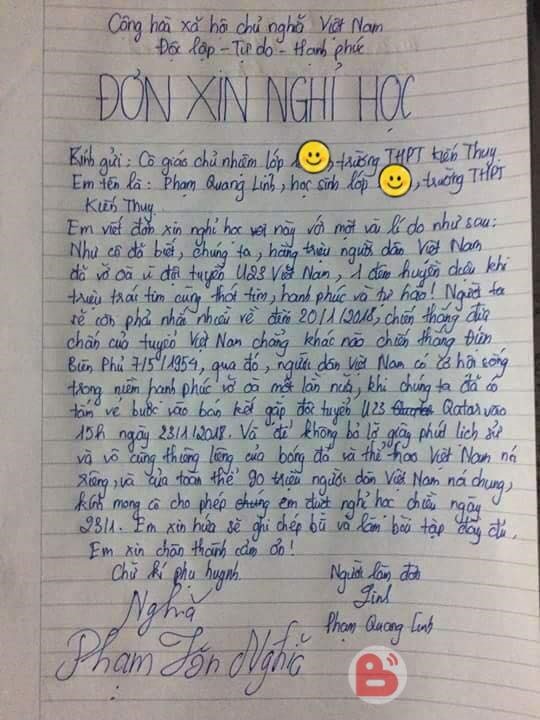 Cộng hòa xã hội chủ nghĩa Việt Nam
Độc lập - Tự do - Hạnh phúc
ĐƠN XIN NGHỈ HỌC
Kính gửi : Cô giáo chủ nhiệm lớp 1 , trường THPT Kiến Thụy
Em tên là : Phạm Quang Linh , học sinh lớp , trường THPT
Kiến Thụy
Em viết đơn xin nghỉ học này với một vài lí do như sau :
Như cô đã biết, chúng ta , hàng triệu người dân Việt Nam
đã vỡ òa vì đội tuyển U23 Việt Nam , 1 đêm huyền diệu khi
triệu trái tim cùng thót tim, hạnh phúc và tự hào ! Người ta
sẽ còn phải nhắc nhiều về đêm 20/1/2018, chiến thắng địa
chấn của tuyển Việt Nam chẳng khác nào chiến thắng Điện
Biên Phủ 7/5/1954, qua đó , người dân Việt Nam có cơ hội sống
trong niềm hạnh phúc vỡ òa một lần nữa, khi chúng ta đã có
tấm vé bước vào bán kết gặp đội tuyển U23 Qatar vào
15h ngày 23/1/2018. Và để không bỏ lỡ giây phút lịch sử
và vô cùng thiêng liêng của bóng đá và thể thao Việt Nam nói
riêng, và của toàn thể 90 triệu người dân Việt Nam nói chung,
kính mong cô cho phép chúng em được nghỉ học chiều ngày
23/1. Em xin hứa sẽ ghi chép bù và làm bài tập đầy đủ.
Em xin chân thành cảm ơn !
Chữ kí phụ huynh
Người làm đơn
Nghĩa
Linh
Phạm Quang Linh
Phạm Tấn Nghĩa
B